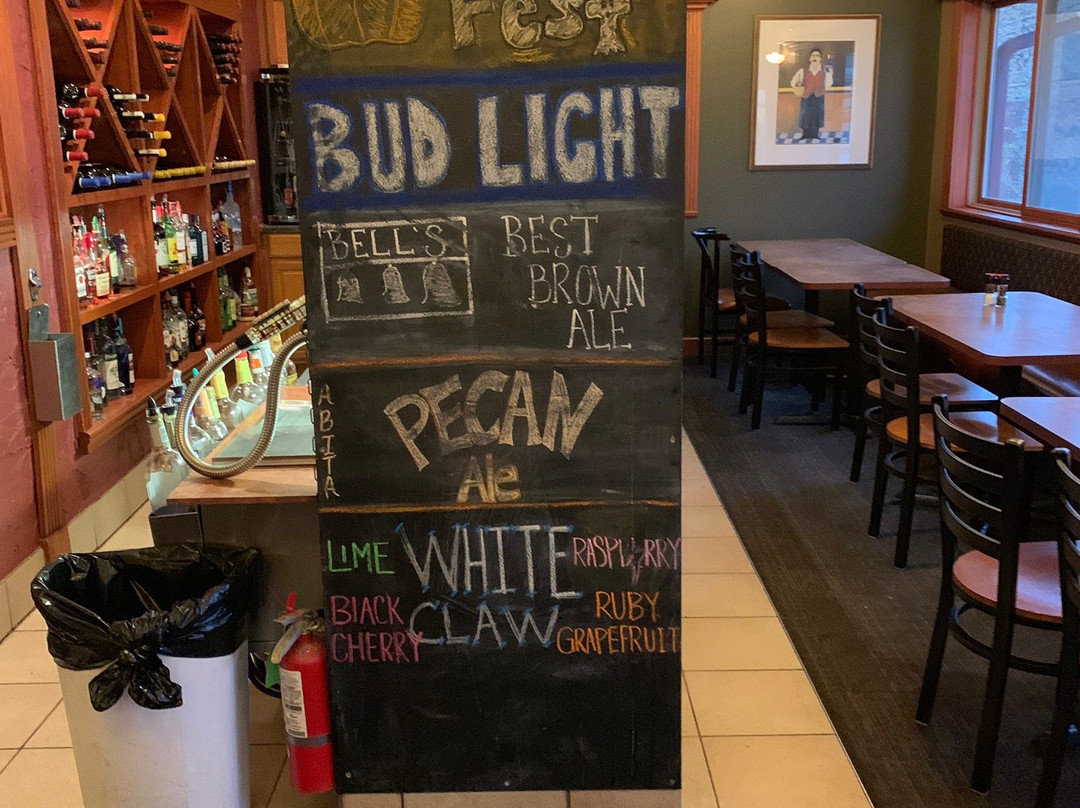 Fest
BUD LIGHT
BELL'S
BEST
BROWN
ALE
ABITA
PECAN
Ale
LIME
WHITE
RASPBERRY
BLACK
CHERRY
CLAW
RUBY
GRAPEFRUIT